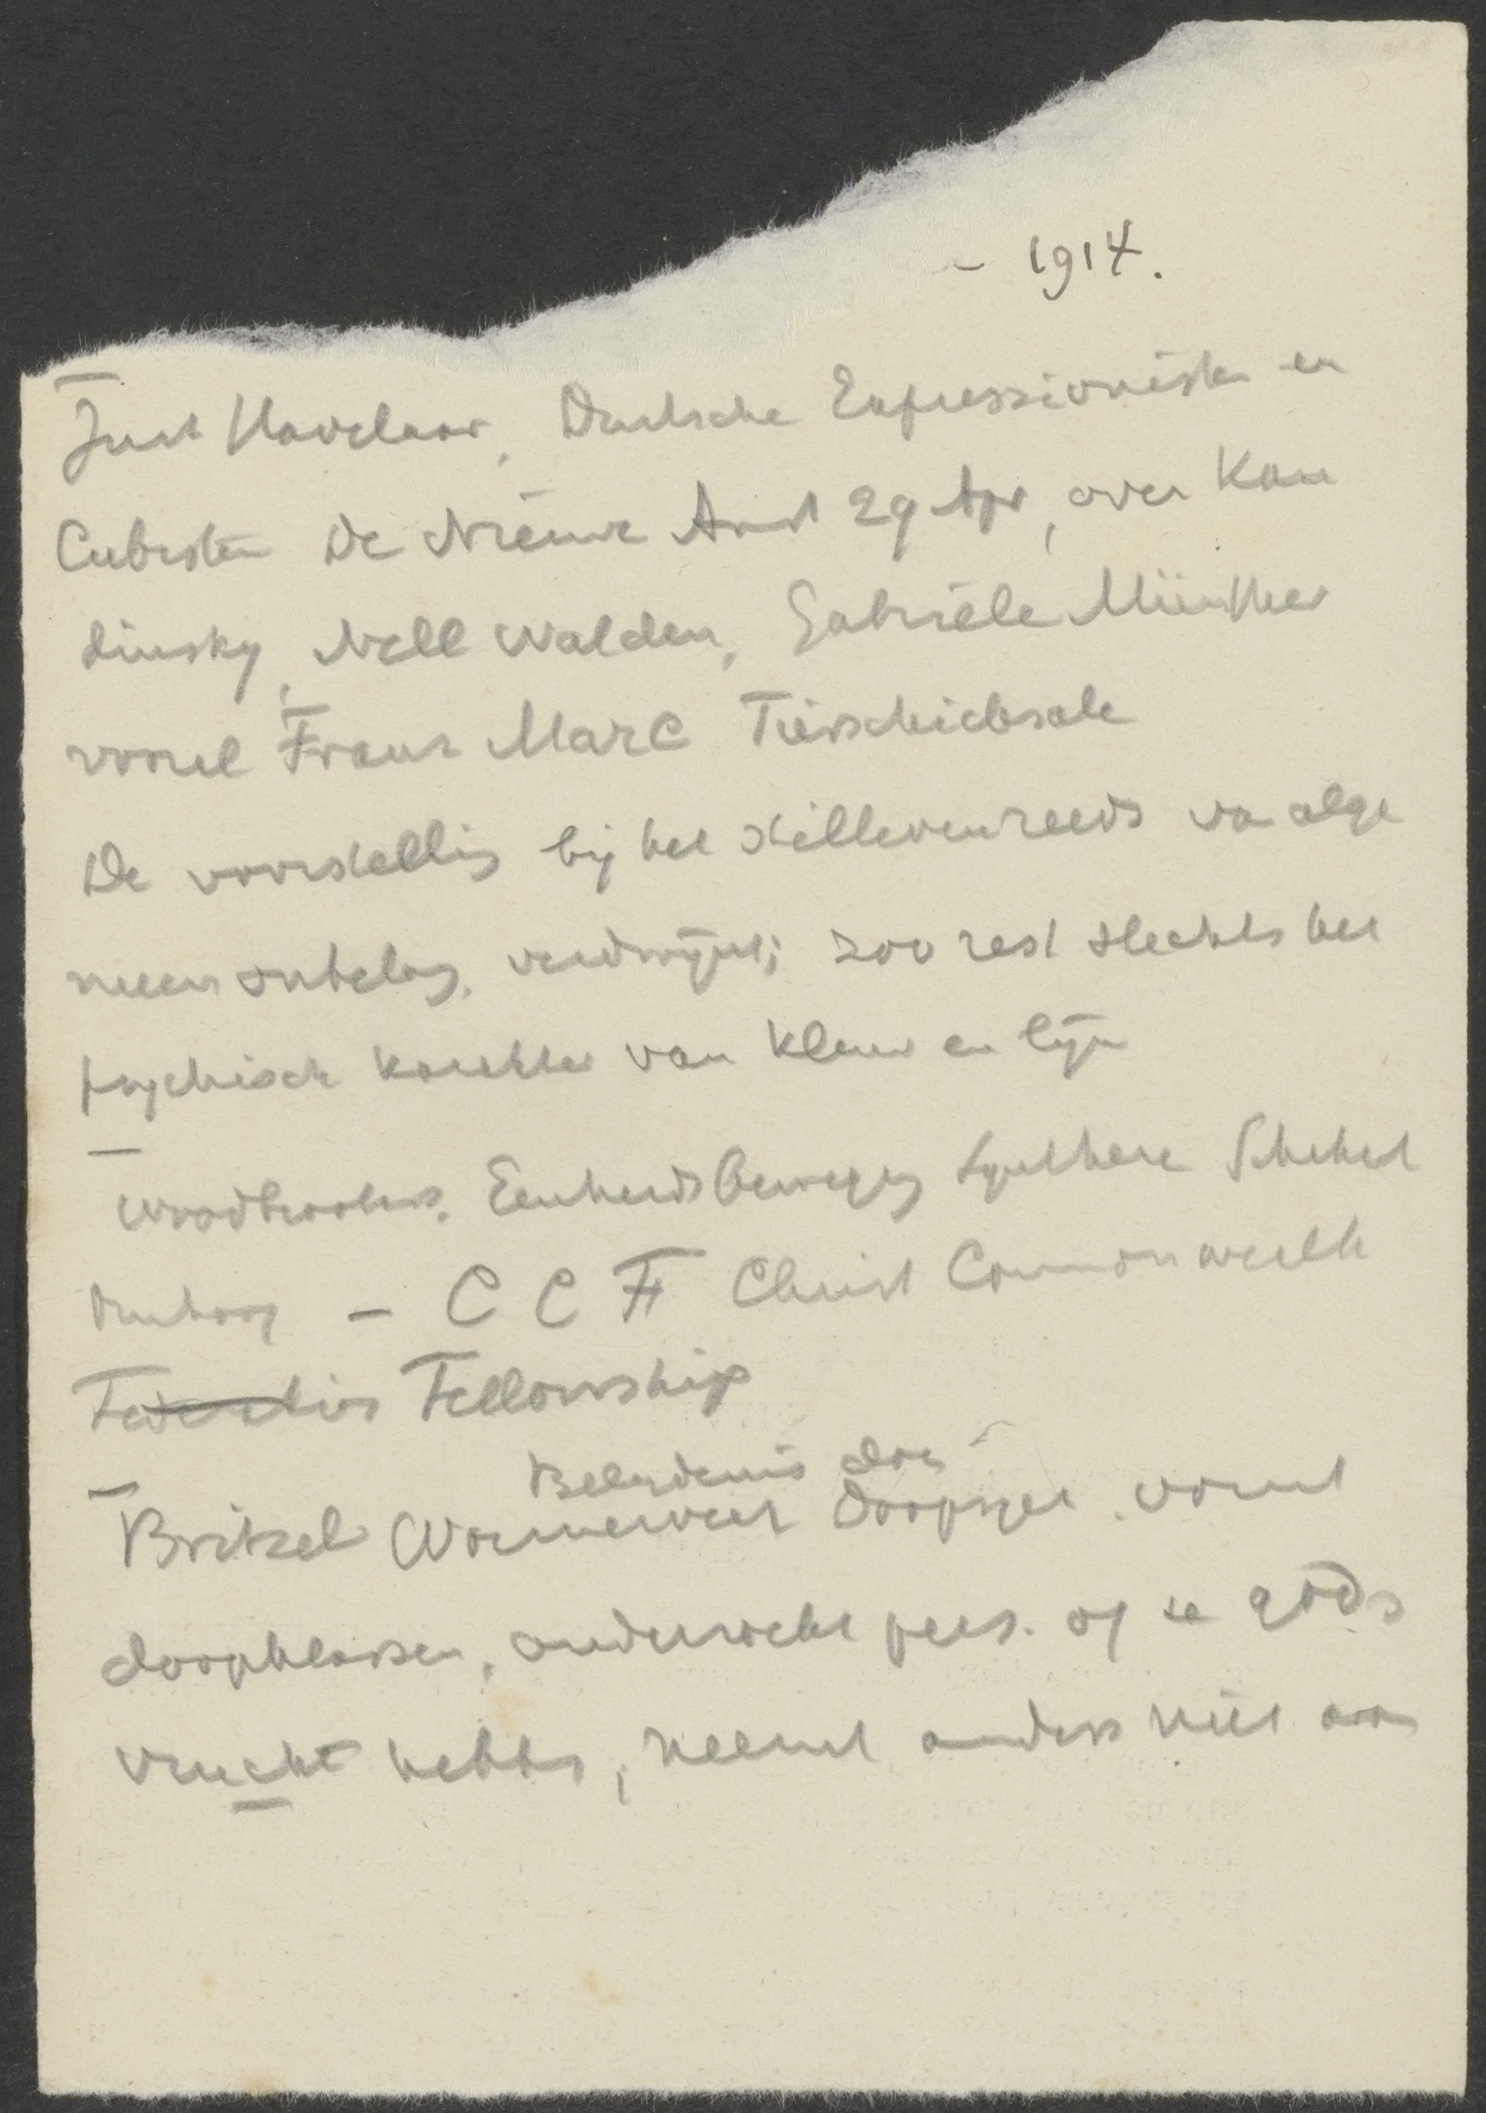 - 1914.
Just Havelaar, Duitsche Expressionisten en
Cubisten De Nieuwe Amst 29 Apr, over Kan
dinsky, Nell Walden, Gabriële Münther
vooral Franz Marc Tierschicksale
De voorstelling bij het stilleven reeds van alge
meen ontelag, verdwijnt; zoo rest slechts het
psychisch karakter van kleur en lijn
Woodbrookers. Eenheidsbeweging Synthese
omhoog - C C F Christ Commonwealth
Federation Fellowship
Belydenis doen
Britzel Wormerveer Doopsgez. vormt
doopklassen, onderzoekt pers. of ze gods
vrucht hebben, neemt anders niet aan